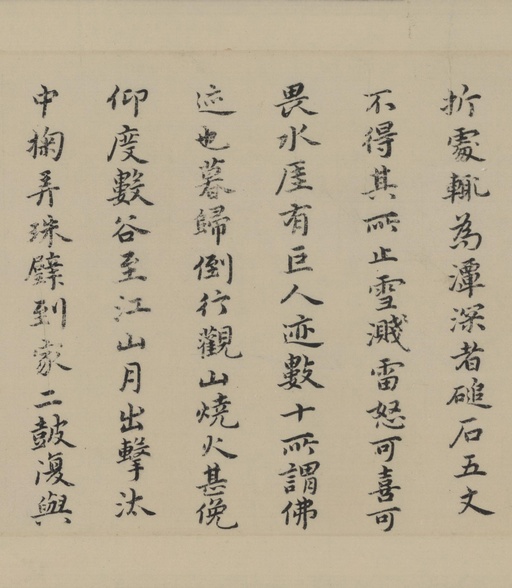 折處輙為潭深者磓石五丈
不得其所止雪濺雷怒可喜可
畏水厓有巨人迹數十所謂佛
迹也暮歸倒行觀山燒火甚俛
仰度數谷至江山月出擊汰
中掬弄珠璧到家二鼓復與